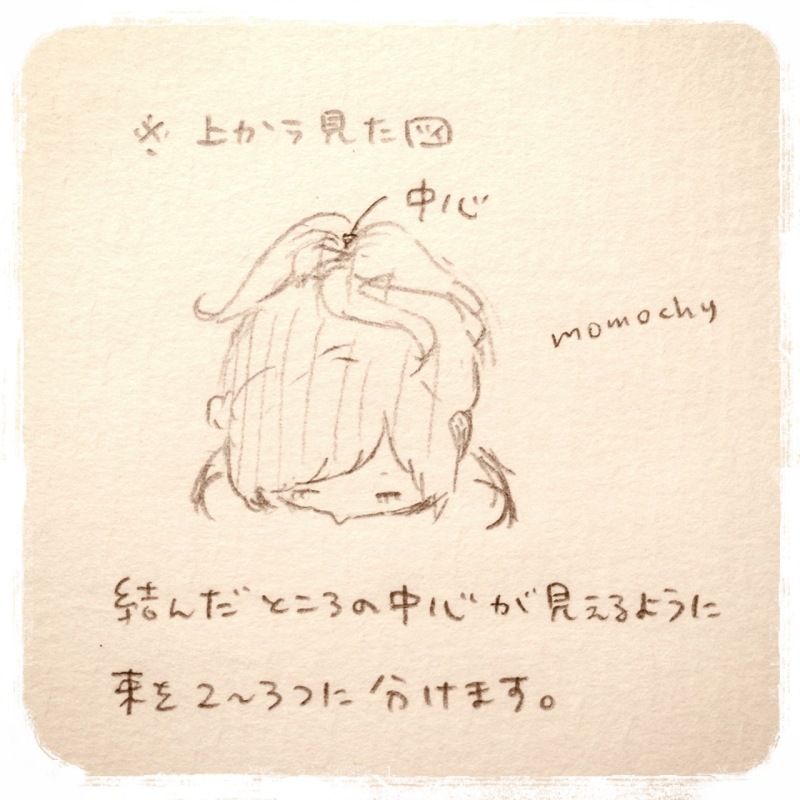 ※ 上から見た図
中心
momochy
結んだところの中心が見えるように
束を2〜3つに分けます。